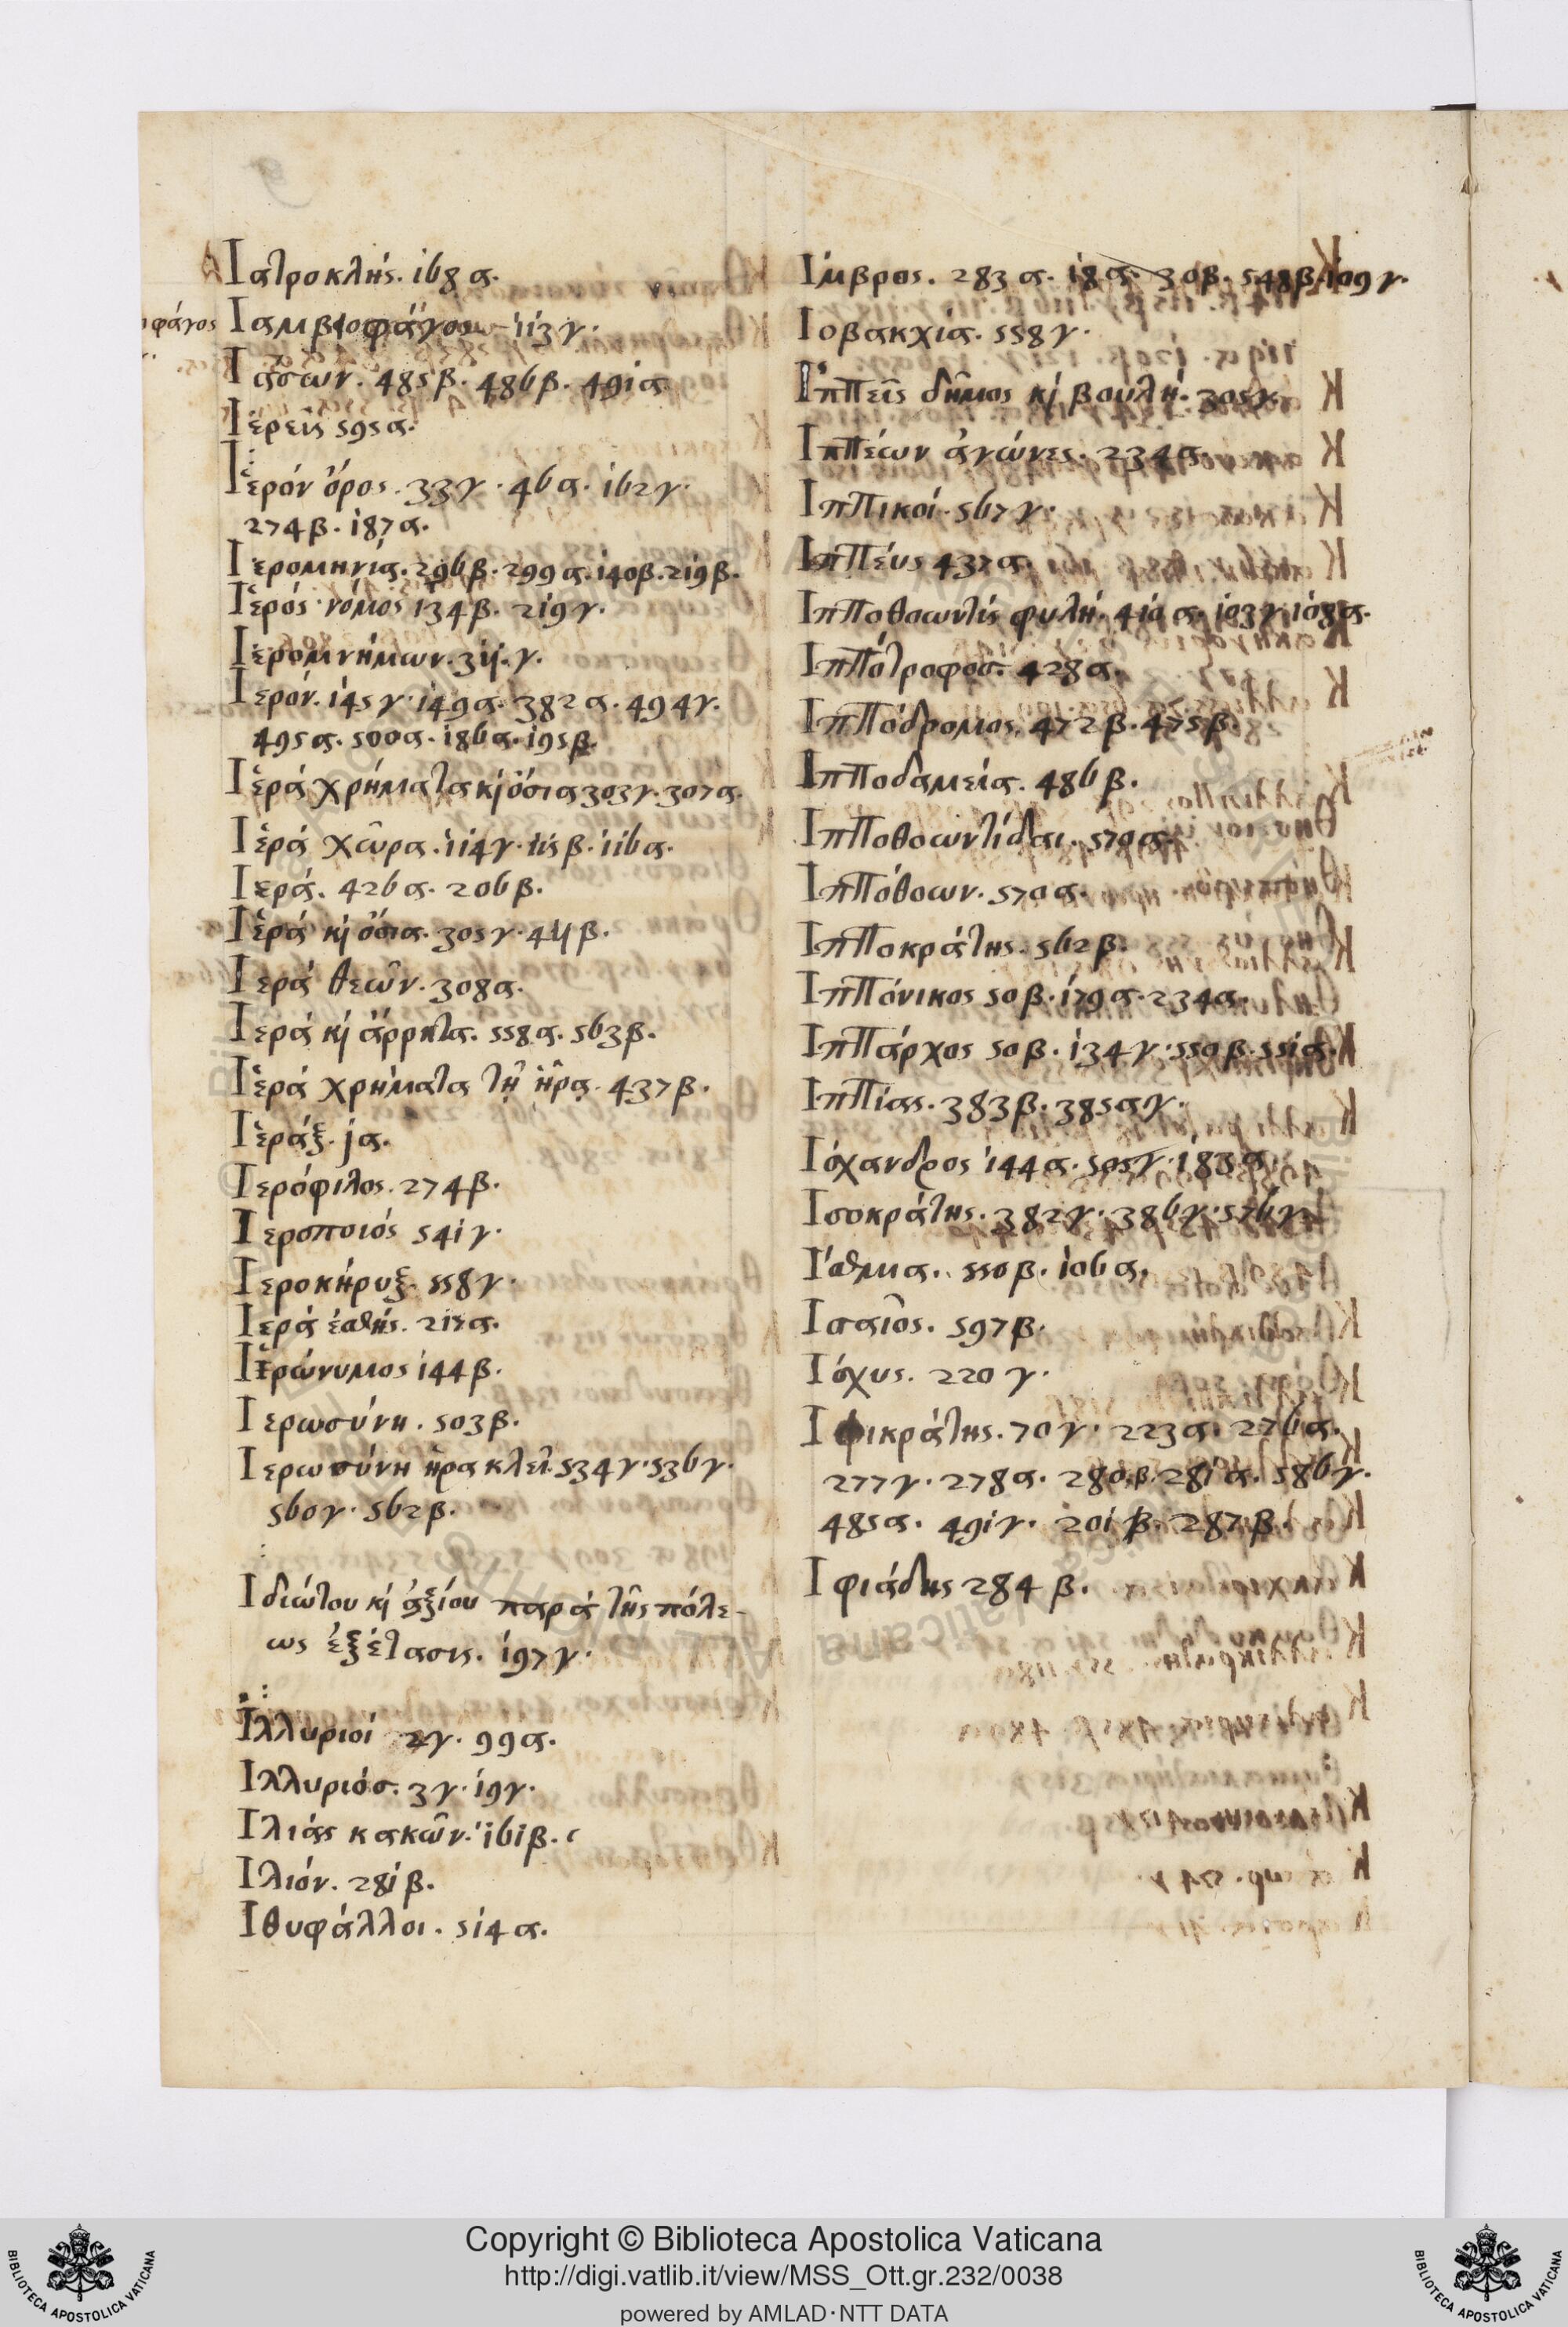 Ιατροκλής. ib8 α.
Ιαμβιοφάγος 113 γ.
φάγος
Ιασων. 485 β. 486 β. 491 α
Ιέρεῖς 595 α.
Ιἑρόν ὄρος. 33 γ. 46 α. 162 γ.
274 β. 187 α.
Ιερομηνία. 296 β. 299 α. 140 β. 219 β.
Ιἑρός νόμος 134 β. 219 γ.
Ιερομνήμων. 311. γ.
Ιερόν. 145 γ. 149 α. 382 α. 494 γ.
495 α. 500 α. 186 α. 195 β.
Ιἑρά χρήματα κὶ ὅσια 303 γ. 307 α.
Ιἑρά χῶρα. 114 γ. 115 β. 116 α.
Ιερά. 426 α. 206 β.
Ιἑρά κὶ ὅσια. 305 γ. 411 β.
Ιερά θεῶν. 308 α.
Ιερά κὶ ἄρρητα. 558 α. 563 β.
Ιἑρά χρήματα τῇ ἥρᾳ. 437 β.
Ιἑράξ. j α.
Ιερόφιλος. 274 β.
Ιεροποιός 541 γ.
Ιεροκήρυξ. 558 γ.
Ιερά ἐσθής. 217 α.
Ιερώνυμος 144 β.
Ιερωσύνη. 503 β.
Ιερωσύνη ἡρακλεῖ. 534 γ. 536 γ.
560 γ. 562 β.
Ιδιώτου κὶ ἀξίου παρά τῆς πόλε-
ως ἐξέτασις. 197 γ.
Ιλλυριοί 2 γ. 99 α.
Ιλλυριόσ. 3 γ. 19 γ.
Ιλιάς κακῶν. 161 β.
Ιλιόν. 281 β.
Ιθυφάλλοι. 514 α.
Ιμβρος. 283 α. 18 α. 30 β. 548 β. 109 γ.
Ιοβακχία. 558 γ.
Ιππεῖς δῆμος κὶ βουλή. 305 γ.
Ιππέων ἀγώνες. 234 α.
Ιππικοί. 567 γ.
Ιππέυς 437 α.
Ιπποθοωντίς φυλή. 410 α. 103 γ. 108 α.
Ιππότροφοσ. 428 α.
Ιππόδρομος. 472 β. 475 β.
Ιπποδαμεία. 486 β.
Ιπποθοωντίδαι. 570 α.
Ιππόθοων. 570 α.
Ιπποκράτης. 562 β.
Ιππόνικος 50 β. 179 α. 234 α.
Ιππάρχος 50 β. 134 γ. 550 β. 551 α.
Ιππίας. 383 β. 385 α γ.
Ισχανδρος 144 α. 505 γ. 183 α.
Ισοκράτης. 382 γ. 386 γ. 576 γ.
Ισθμια. 550 β. 106 α.
Ισαῖος. 597 β.
Ισχυς. 220 γ.
Ιφικράτης. 70 γ. 223 α. 276 α.
277 γ. 278 α. 280 β. 281 α. 586 γ.
485 α. 491 γ. 201 β. 287 β.
Ιφιάδης 284 β.
Copyright © Biblioteca Apostolica Vaticana
http://digi.vatlib.it/view/MSS_Ott.gr.232/0038
powered by AMLAD·NTT DATA
BIBLIOTECA APOSTOLICA VATICANA
BIBLIOTECA APOSTOLICA VATICANA